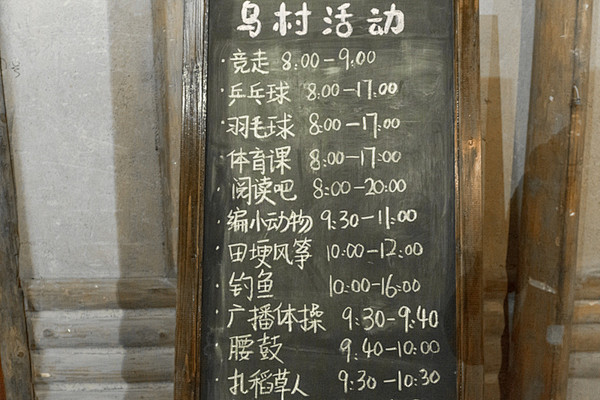 乌村活动
·竞走 8:00-9:00
·乒乓球 8:00-17:00
·羽毛球 8:00-17:00
·体育课 8:00-17:00
·阅读吧 8:00-20:00
·编小动物 9:30-11:00
·田埂风筝 10:00-12:00
·钓鱼 10:00-16:00
·广播体操 9:30-9:40
·腰鼓 9:40-10:00
·扎稻草人 9:30-10:30